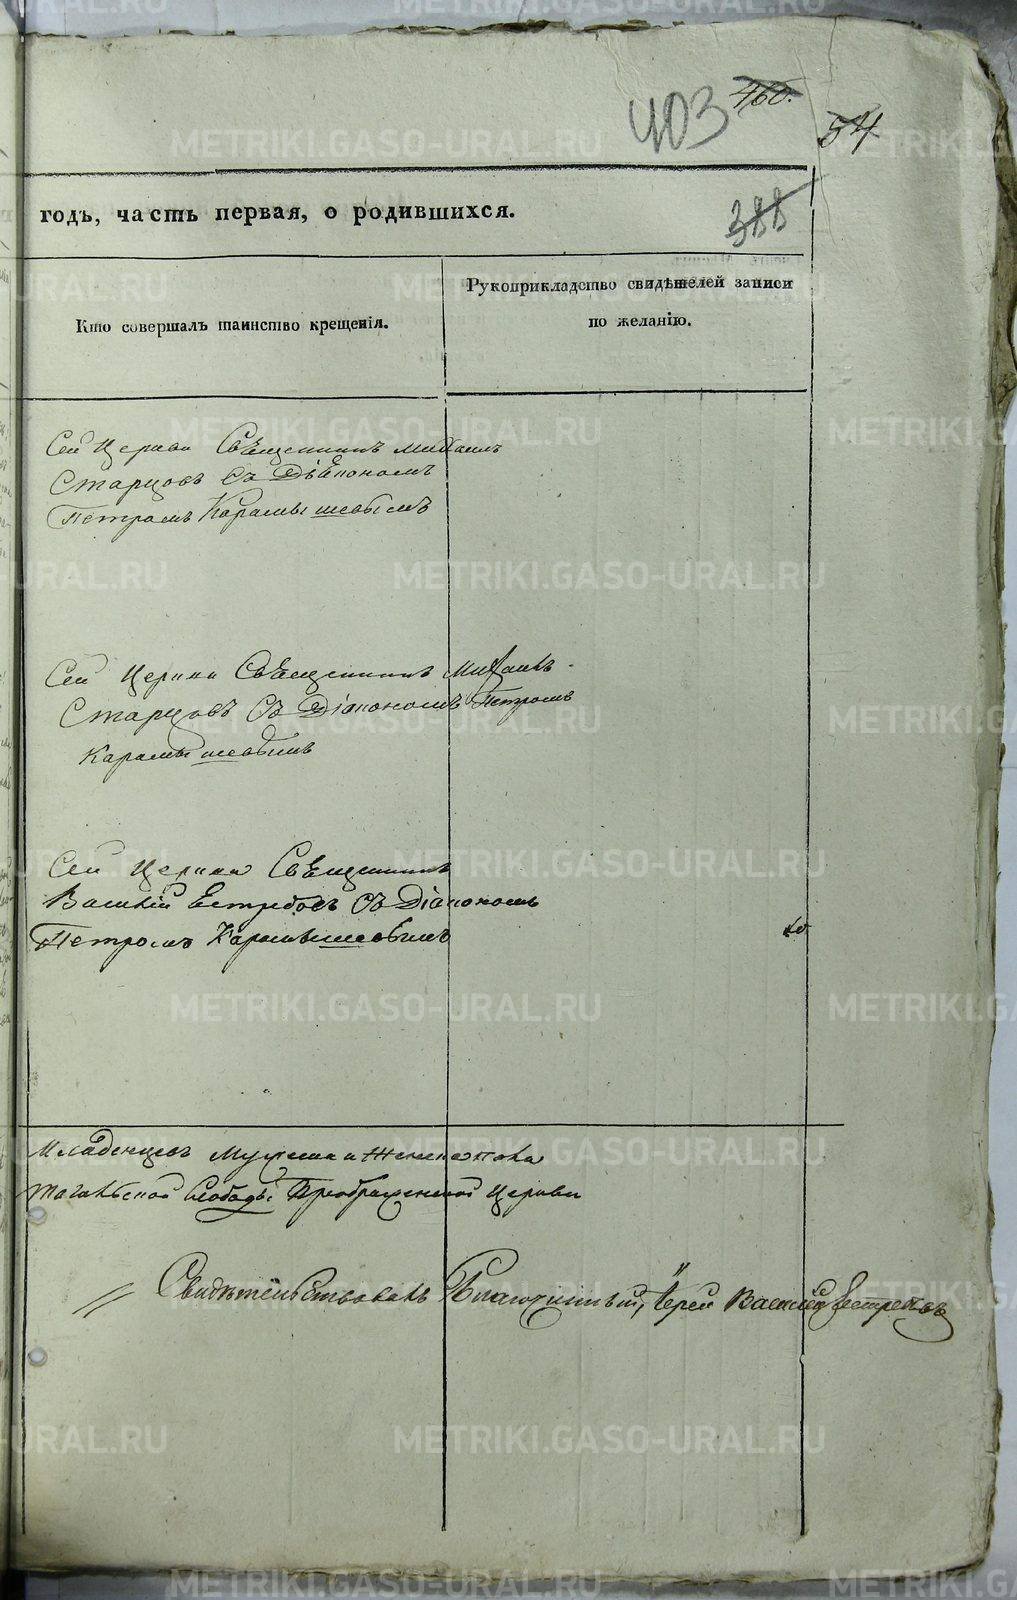 403 460.
54
годъ, часть первая, о родившихся.
388
Кто совершалъ таинство крещенія.
Рукоприкладство свидѣтелей записи
по желанію.
Сей Церкви Свѣщенникъ Михаилъ
Старцовъ Съ Діякономъ
Петромъ Карамышевымъ
Сей Церкви Свѣщенникъ Михаилъ
Старцовъ Съ Діакономъ Петромъ
Карамышевымъ
Сей Церкви Свѣщенникъ
Василій Ястребовъ Съ Діакономъ
Петромъ Карамышевымъ
Младенцевъ Мужеска и Женска пола
Тагильской Слободы Преображенской Церкви
Свидѣтельствовалъ Благочинный, Іерей Василій Ястребовъ
METRIKI.GASO-URAL.RU